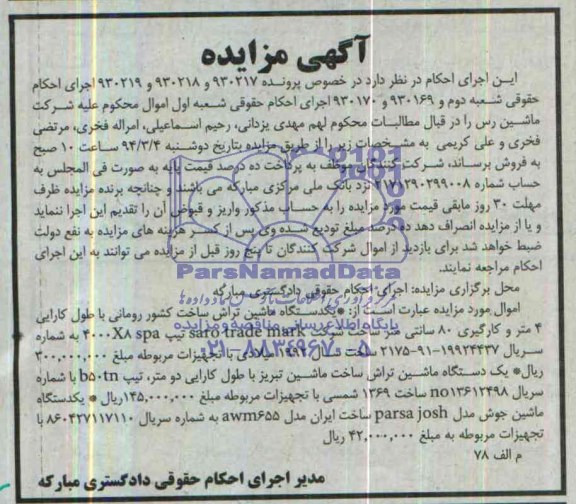 آگهی مزایده
این اجرای احکام در نظر دارد در خصوص پرونده ۹۳۰۲۱۷ و ۹۳۰۲۱۸ و ۹۳۰۲۱۹ اجرای احکام
حقوقی شعبه دوم و ۹۳۰۱۶۹ و ۹۳۰۱۷۰ اجرای احکام حقوقی شعبه اول اموال محکوم علیه شرکت
ماشین رس را در قبال مطالبات محکوم لهم مهدی یزدانی، رحیم اسماعیلی، امراله فخری، مرتضی
فخری و علی کریمی به مشخصات زیر را از طریق مزایده بتاریخ دوشنبه ۹۴/۳/۴ ساعت ۱۰ صبح
به فروش برساند، شرکت کنندگان موظف به پرداخت ده درصد قیمت پایه به صورت فی المجلس به
حساب شماره ۲۱۷۱۲۹۰۲۹۹۰۰۸ نزد بانک ملی مرکزی مبارکه می باشند و چنانچه برنده مزایده ظرف
مهلت ۳۰ روز مابقی قیمت مورد مزایده را به حساب مذکور واریز و قبوض آن را تقدیم این اجرا ننماید
و یا از مزایده انصراف دهد ده درصد مبلغ تودیع شده وی پس از کسر هزینه های مزایده به نفع دولت
ضبط خواهد شد برای بازدید از اموال شرکت کنندگان تا پنج روز قبل از مزایده می توانند به این اجرای
احکام مراجعه نمایند.
ParsNamadData
محل برگزاری مزایده: اجرای احکام حقوقی دادگستری مبارکه
اموال مورد مزایده عبارت است از: * یکدستگاه ماشین تراش ساخت کشور رومانی با طول کارایی
پایگاه اطلاع رسانی مناقصه و مزایده
۴ متر و کارگیری ۸۰ سانتی متر ساخت شرکت saro trade mark تیپ ۴۰۰۰X۸ spa به شماره
سریال ۱۹۹۲۴۴۳۷-۹۱-۲۱۷۵ ساخت سال ۱۹۹۲ میلادی با تجهیزات مربوطه مبلغ ۳۰۰,۰۰۰,۰۰۰
۰۲۱-۸۸۳۴۹۶۷۰-۵
ریال* یک دستگاه ماشین تراش ساخت ماشین تبریز با طول کارایی دو متر، تیپ b۵۰tn با شماره
سریال no۱۳۶۱۲۴۹۸ ساخت ۱۳۶۹ شمسی با تجهیزات مربوطه مبلغ ۱۴۵,۰۰۰,۰۰۰ریال * یکدستگاه
ماشین جوش مدل parsa josh ساخت ایران مدل awm۶۵۵ به شماره سریال ۸۶۰۴۲۷۱۱۷۱۱۰ با
تجهیزات مربوطه به مبلغ ۴۲,۰۰۰,۰۰۰ ریال
م الف ۷۸
مدیر اجرای احکام حقوقی دادگستری مبارکه